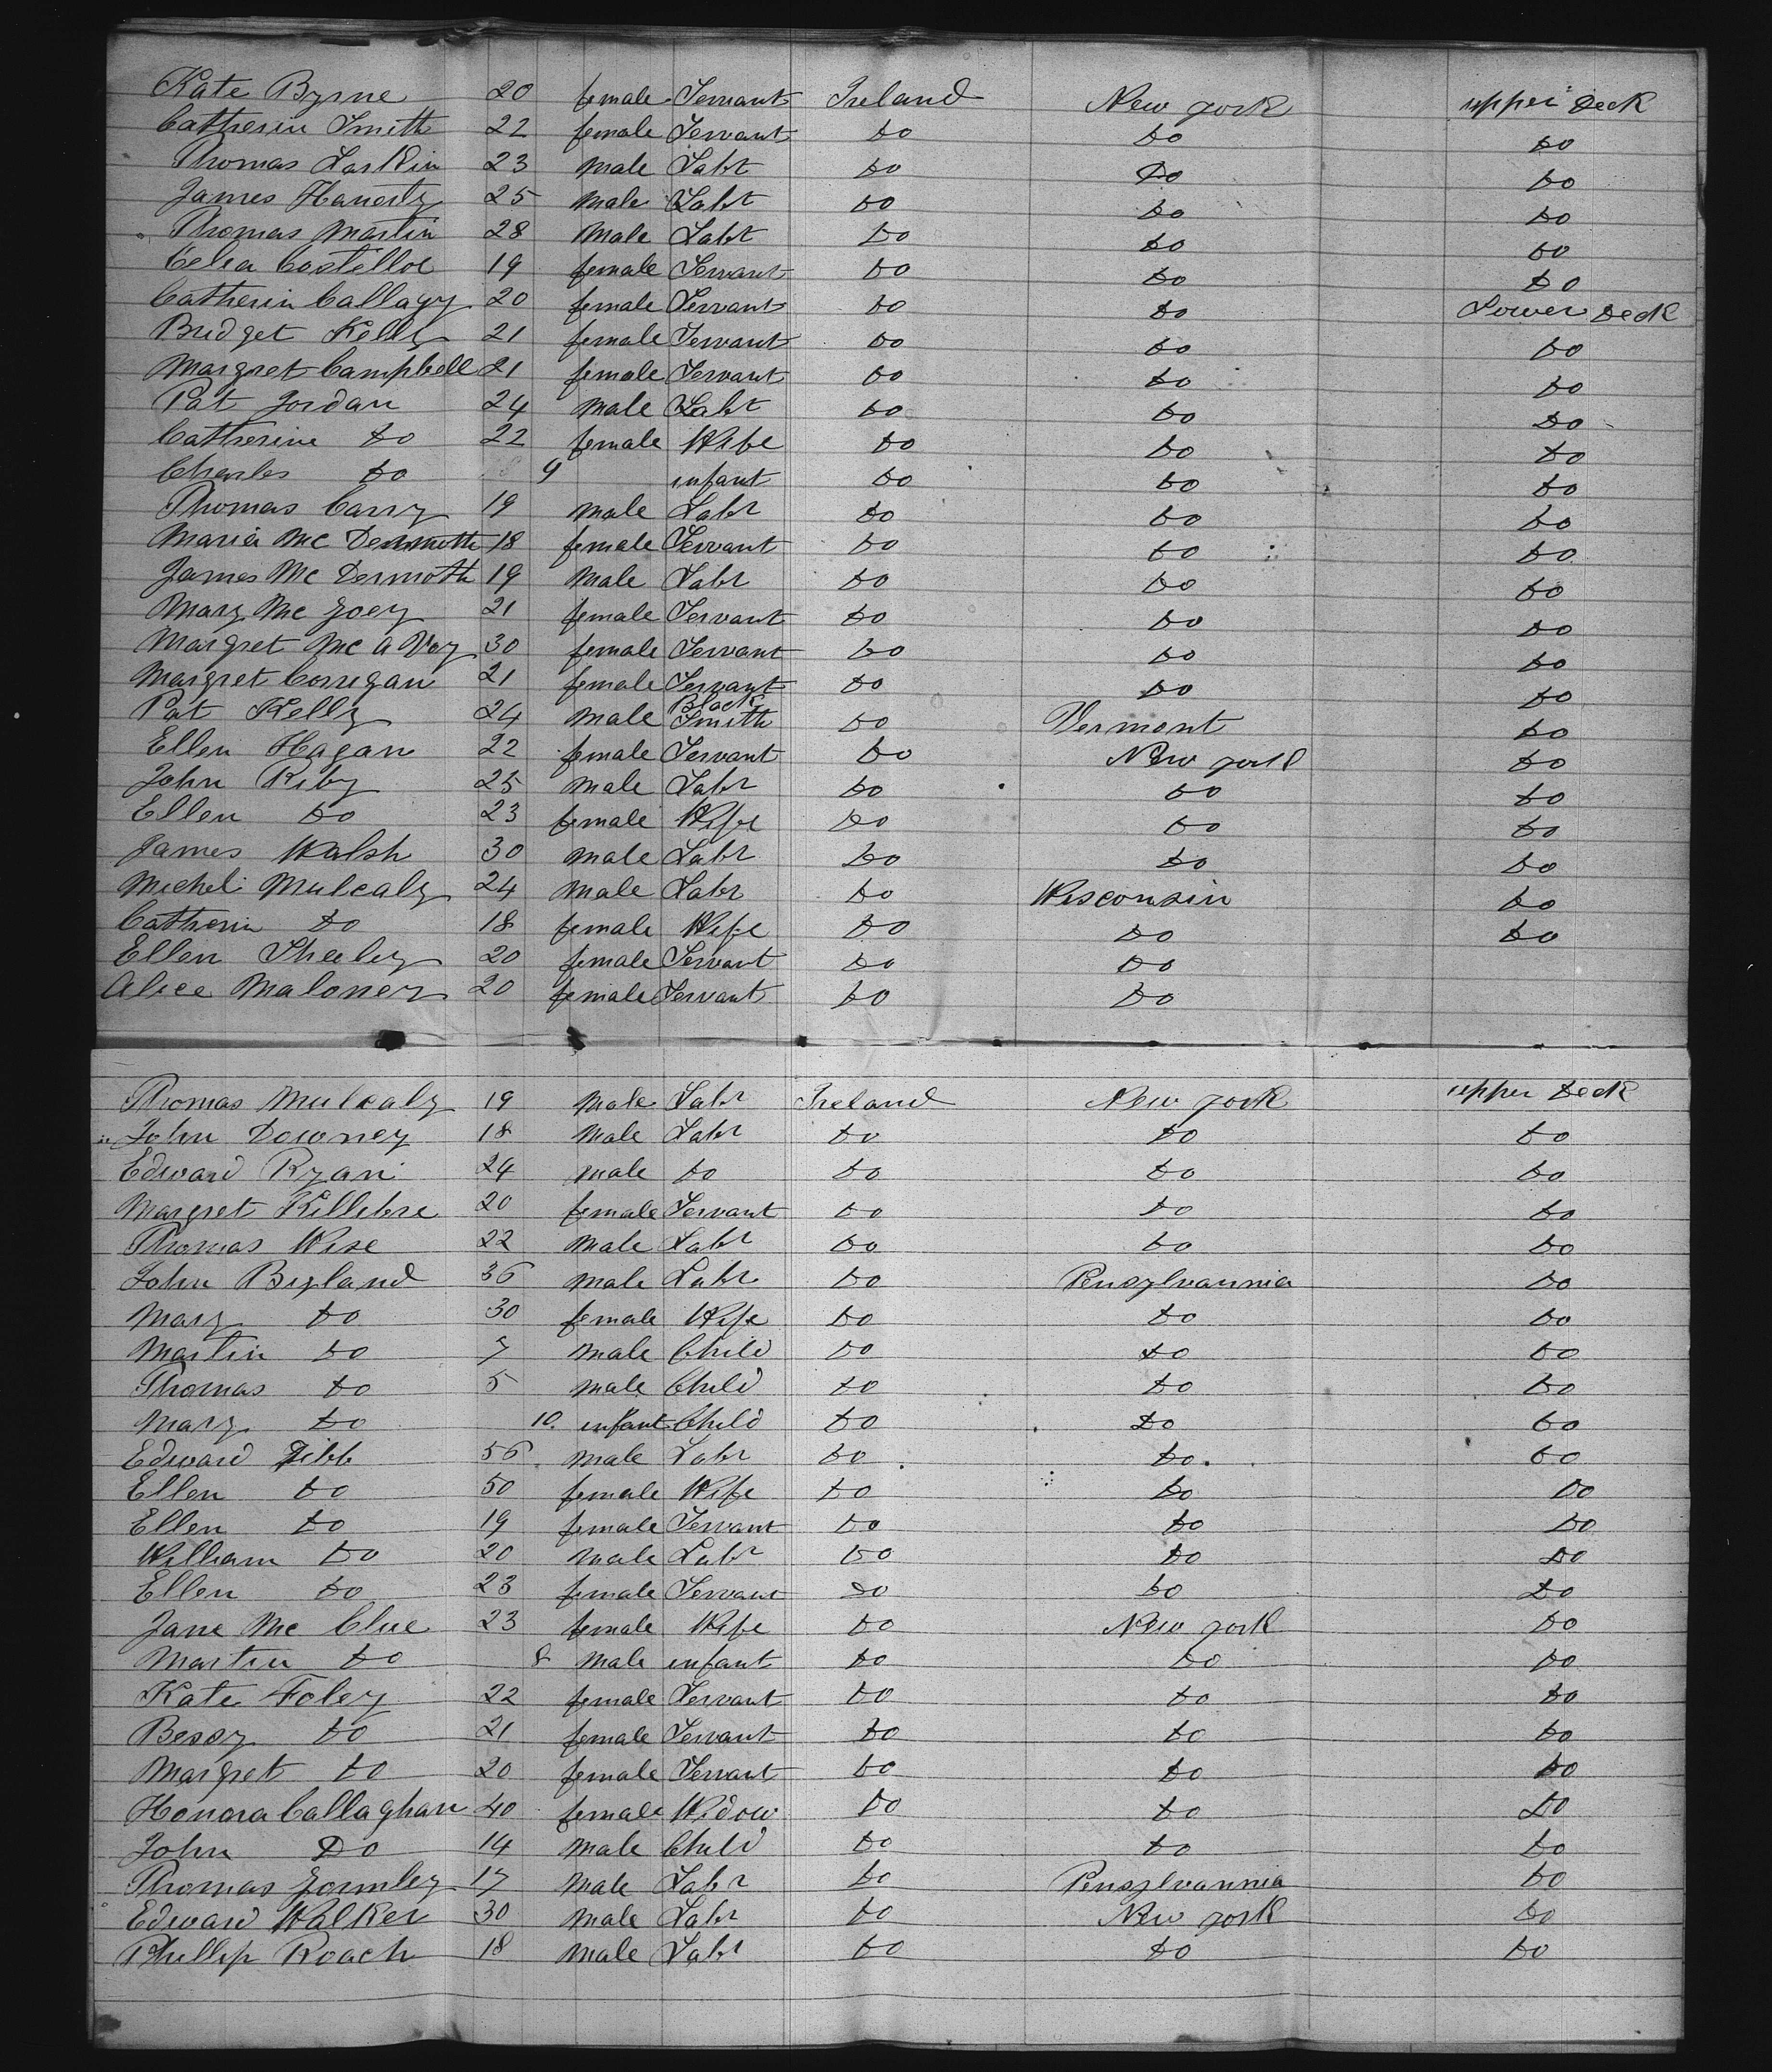 Kate Byrne 20 female Servant Ireland New york upper Deck
Catherin Smith 22 female Servant Do Do Do
Thomas Larkin 23 Male Labt Do Do Do
James Hanerty 25 Male Labt Do Do Do
Thomas Martin 28 Male Labt Do Do Do
Celia Costelloe 19 female Servant Do Do Do
Catherin Callagy 20 female Servant Do Do Lower Deck
Bridget Kelly 21 female Servant Do Do Do
Margret Campbell 21 female Servant Do Do Do
Pat Jordan 24 Male Labt Do Do Do
Catherine Do 22 female Wife Do Do Do
Charles Do 9 infant Do Do Do
Thomas Carry 19 Male Labr Do Do Do
Maria Mc Dermoth 18 female Servant Do Do Do
James Mc Dermoth 19 Male Labr Do Do Do
Mary Mc goey 21 female Servant Do Do Do
Margret Mc a Voy 30 female Servant Do Do Do
Margret Corregan 21 female Servant Do Do Do
Pat Kelly 24 Male Black Smith Do Vermont Do
Ellen Hagan 22 female Servant Do New york Do
John Riby 25 Male Labr Do Do Do
Ellen Do 23 female Wife Do Do Do
James Walsh 30 Male Labr Do Do Do
Michel Mulcaly 24 Male Labr Do Wisconsin Do
Catherin Do 18 female Wife Do Do Do
Ellen Sheeley 20 female Servant Do Do
Alice Maloney 20 female Servant Do Do
Thomas Mulcaly 19 Male Labr Ireland New york upper Deck
John Downey 18 Male Labr Do Do Do
Edward Ryan 24 Male Do Do Do Do
Margret Killebre 20 female Servant Do Do Do
Thomas Wise 22 Male Labr Do Do Do
John Bigland 36 Male Labr Do Pensylvannia Do
Mary Do 30 female Wife Do Do Do
Martin Do 7 Male Child Do Do Do
Thomas Do 5 Male Child Do Do Do
Mary Do 10. infant Child Do Do Do
Edward Tibb 56 Male Labr Do Do Do
Ellen Do 50 female Wife Do Do Do
Ellen Do 19 female Servant Do Do Do
William Do 20 Male Labr Do Do Do
Ellen Do 23 female Servant Do Do Do
Jane Mc Clue 23 female Wife Do New york Do
Martin Do 8 Male infant Do Do Do
Kate Foley 22 female Servant Do Do Do
Bessy Do 21 female Servant Do Do Do
Margret Do 20 female Servant Do Do Do
Honora Callaghan 40 female Widow Do Do Do
John Do 14 Male Child Do Do Do
Thomas gormley 17 Male Labr Do Pensylvannia Do
Edward Walker 30 Male Labr Do New york Do
Phillip Roach 18 Male Labr Do Do Do